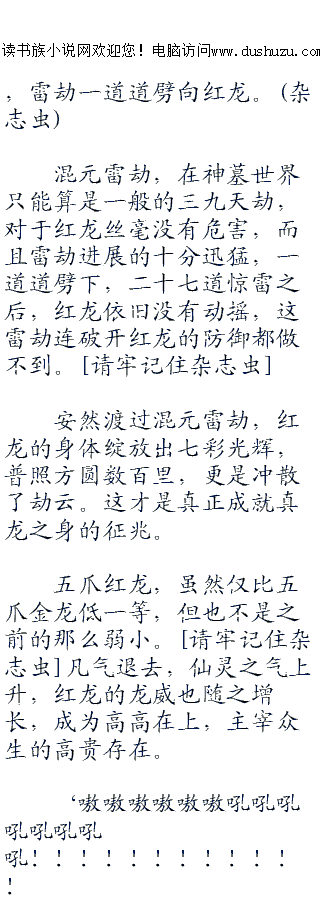 读书族小说网欢迎您！电脑访问www.dushuzu.com
，雷劫一道道劈向红龙。(杂
志虫)
混元雷劫，在神墓世界
只能算是一般的三九天劫，
对于红龙丝毫没有危害，而
且雷劫进展的十分迅猛，一
道道劈下，二十七道惊雷之
后，红龙依旧没有动摇，这
雷劫连破开红龙的防御都做
不到。[请牢记住杂志虫]
安然渡过混元雷劫，红
龙的身体绽放出七彩光辉，
普照方圆数百里，更是冲散
了劫云。这才是真正成就真
龙之身的征兆。
五爪红龙，虽然仅比五
爪金龙低一等，但也不是之
前的那么弱小。[请牢记住杂
志虫]凡气退去，仙灵之气上
升，红龙的龙威也随之增
长，成为高高在上，主宰众
生的高贵存在。
‘嗷嗷嗷嗷嗷嗷吼吼吼
吼吼吼吼
吼！！！！！！！！！！！
！